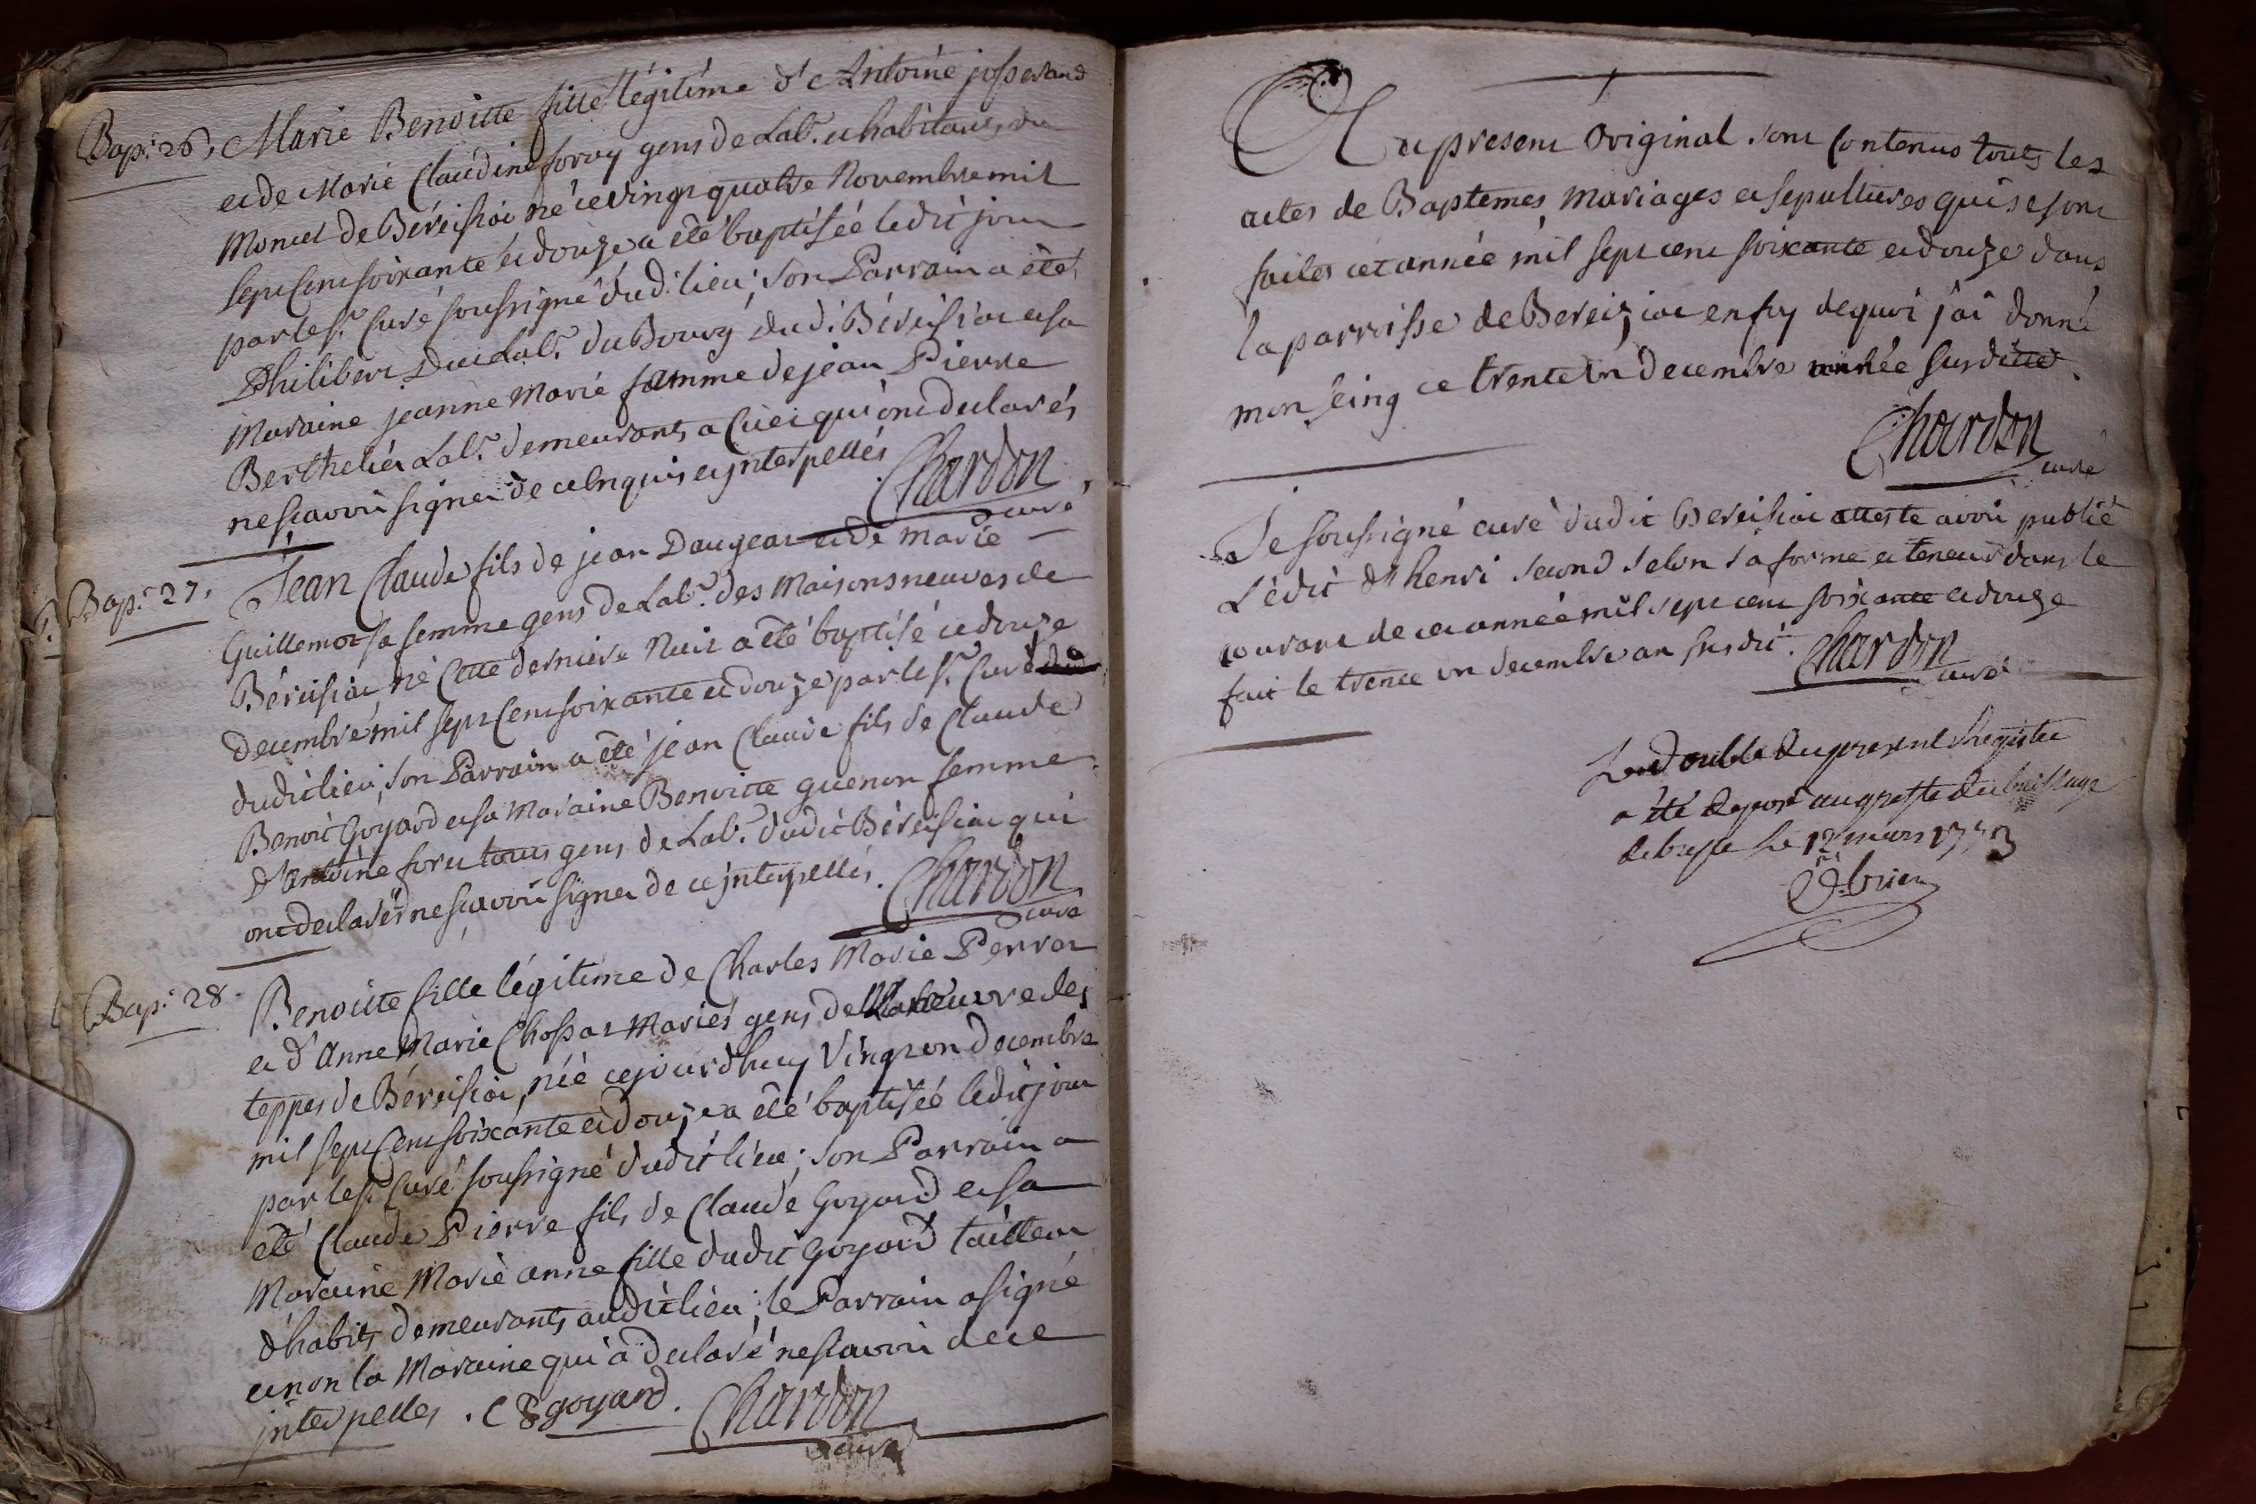 Bap.^e 26, Marie Benoitte fille légitime d'Antoine josserand
et de Marie Claudine foray gens de Lab.^r et habitants du
Moncel de Béréisiat né ce vingt quatre Novembre mil
sept Cent soixante et douze a été baptisée ledit jour
par le s.^r Curé soussigné dud. lieu; son Parrain a été
Philibert Duc Lab.^r du Bourg dud. Béréisiat et sa
Maraine jeanne Marie famme de jean Pierre
Berthelier Lab.^r demeurants a Cuet qui ont declarés
ne sçavoir signer de ce Enquis et jnterpellés Chardon
curé
Bap.^e 27, Jean Claude fils de jean Daujeat et de Marie
Guillemot sa femme gens de Lab.^r des Maisons neuves de
Béréisiat, né Cette derniere Nuit a été baptisé ce douze
decembre mil sept Cent soixante et douze par le s.^r Curé
dudit lieu; son Parrain a été jean Claude fils de Claude
Benoit Goyard et sa Maraine Benoitte guenon femme
d'antoine foret tous gens de Lab.^r dudit Béréisiat qui
ont declarés ne sçavoir signer de ce jnterpellés. Chardon
curé
Bap.^e 28. Benoitte fille légitime de Charles Marie Perrot
et d'Anne Marie Chossat Mariés gens de Labeur des
teppes de Béréisiat, née cejourdhuy Vingt un decembre
mil sept Cent soixante et douze a été baptisée ledit jour
par le s.^r Curé soussigné dudit lieu; son Parrain a
été Claude Pierre fils de Claude Goyard et sa
Maraine Marie anne fille dudit Goyard tailleur
d'habits demeurants audit lieu; le Parrain a signé
et non la Maraine qui a declaré ne sçavoir de ce
jnterpelles. C P goyard. Chardon
curé
Au present Original sont Contenus touts les
actes de Baptemes Mariages et sepultures qui se sont
faites cet année mil sept cent soixante et douze dans
la parroisse de Bereiziat en foy de quoi j'ai donné
mon seing ce trente un decembre année susditte.
Chardon
curé
Je soussigné curé dudit Béréisiat atteste avoir publié
L'édit d'henri second selon sa forme et teneur dans le
courant de cet année mil sept cent soixante et douze
fait le trente un decembre an susdit. Chardon
curé
Le double du present Registre
a été deposé au greffe du bailliage
de bresse le 12 mars 1773
Debrien